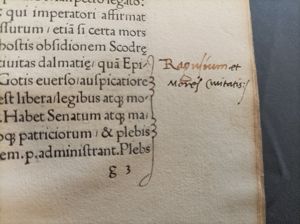 spectu legato:
: qui imperatori affirmat
ssurum / etiã si certa mors
hostis obsidionem Scodrę
ciuitas dalmatię / quã Epi⸗
Gotis euerso / auspicatiore
est libera / legibus atq; mo⸗
. Habet Senatum atq; ma⸗
oq; patriciorum / & plebis
em. p. administrant. Plebs
g 3
Ragusium et
Mores ciuitatis